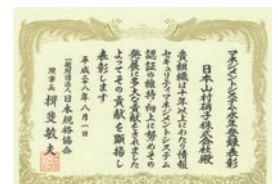 マネジメントシステム永年登録表彰
日本山村硝子株式会社殿
貴組織は十年以上にわたり情報
セキュリティマネジメントシステム
認証の維持・向上に努めその
発展に多大な貢献をされました
よってその貢献を顕揚し
表彰します
平成二八年八月一日
一般財団法人日本規格協会
理事長 揖斐敏夫